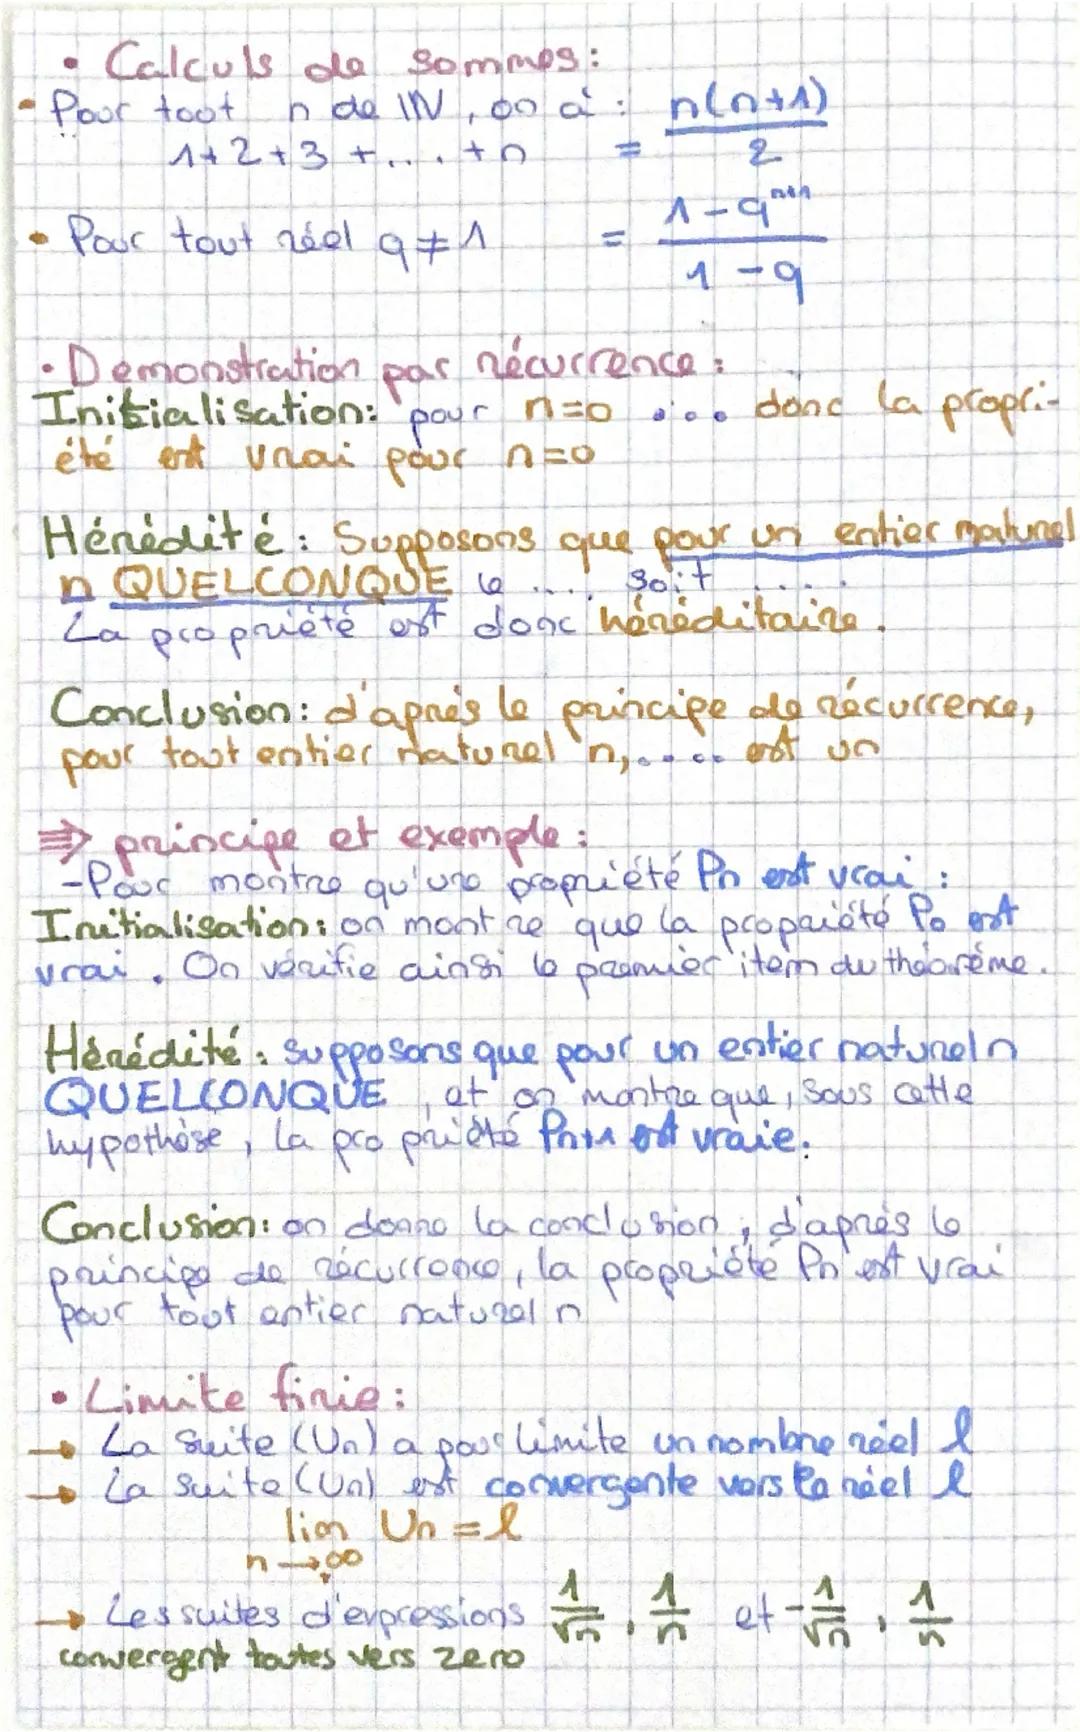 • Calculs de sommes :
- Pour toot n de IN, on a : n(n+1)
1+2+3 +.... +n = 2
• Pour tout réel q ≠ 1 = 1-q^n+1 / 1-q
• Démonstration par récurrence :
Initialisation: pour n=0 .... donc la propri-
été est vrai pour n=0
Hérédité : Supposons que pour un entier naturel
n QUELCONQUE le .... soit ....
La propriété est donc héréditaire.
Conclusion: d'après le principe de récurrence,
pour tout entier naturel n, .... est un
⇒ principe et exemple :
-Pour montre qu'une propriété Pn est vrai :
Initialisation: on montre que la propriété P0 est
vrai. On vérifie ainsi le premier item du théorème.
Hérédité : supposons que pour un entier naturel n
QUELCONQUE, et on montre que, sous cette
hypothèse, la propriété Pn+1 est vraie.
Conclusion: on donne la conclusion, d'après le
principe de récurrence, la propriété Pn est vrai
pour tout entier naturel n
• Limite finie :
→ La suite (Un) a pour limite un nombre réel l
→ La suite (Un) est convergente vers le réel l
lim Un = l
n→∞
→ Les suites d'expressions 1/√n, 1/n et -1/√n, 1/n
convergent toutes vers zero